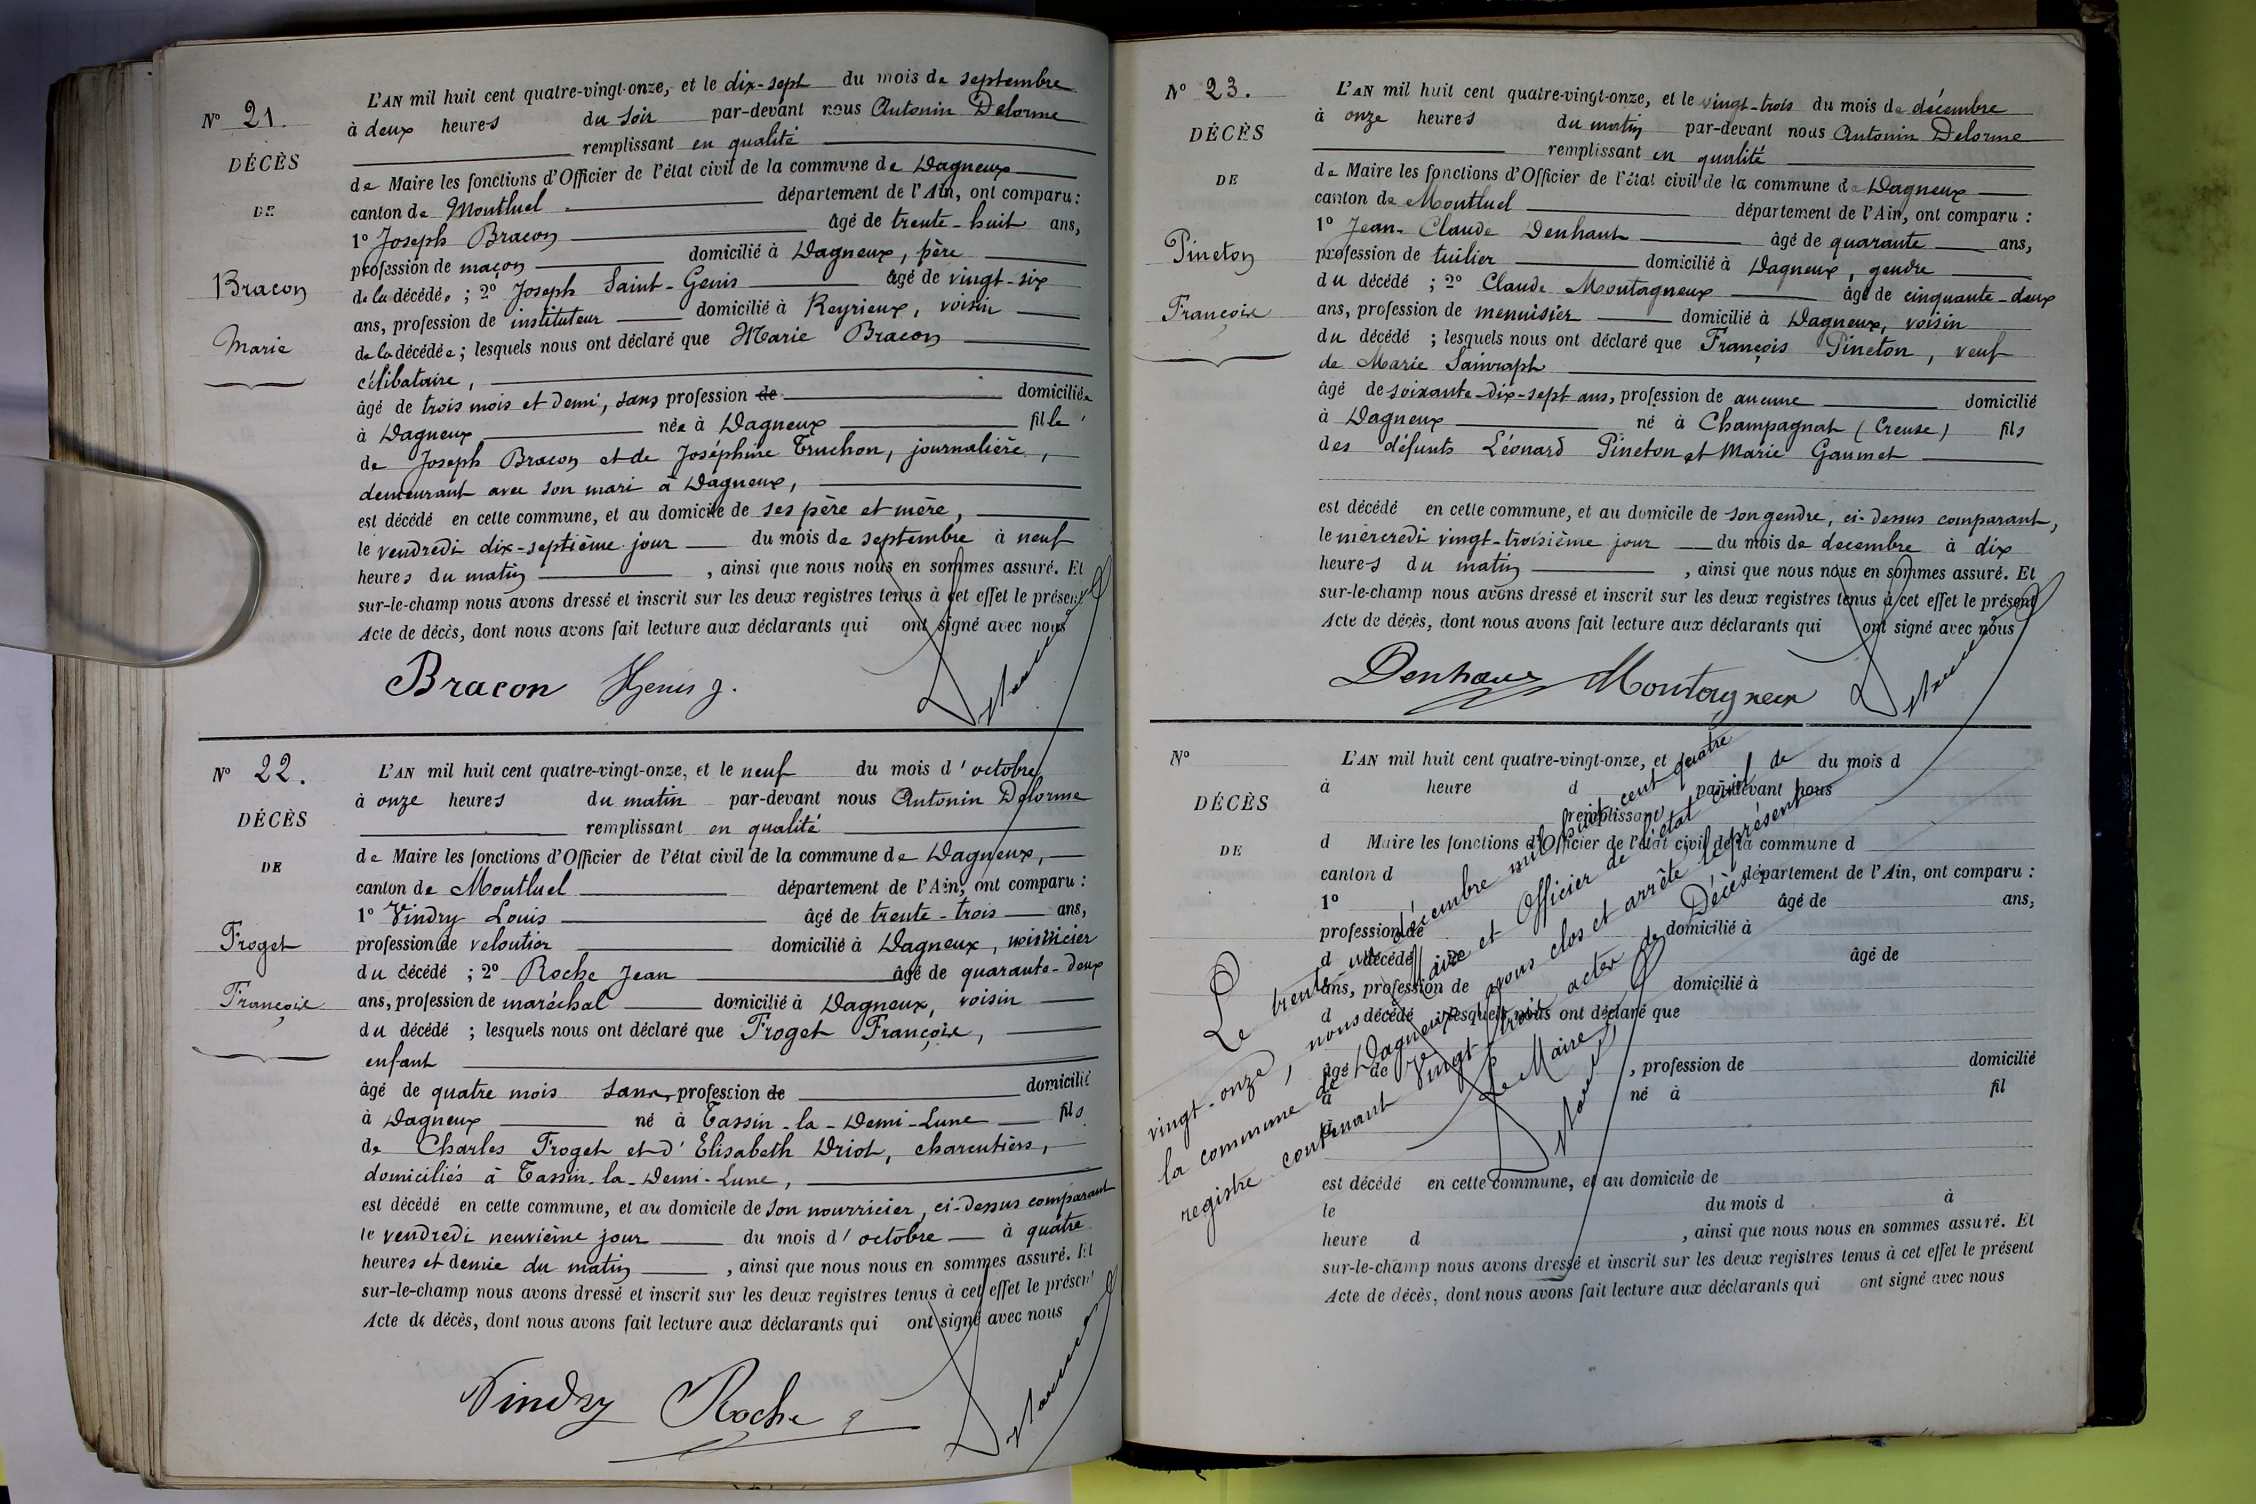 N° 21.
DÉCÈS
DE
Bracon
Marie
L'AN mil huit cent quatre-vingt-onze, et le dix-sept du mois de septembre
à deux heures du soir par-devant nous Antonin Delorme
remplissant en qualité
de Maire les fonctions d'Officier de l'état civil de la commune de Dagneux
canton de Montluel département de l'Ain, ont comparu :
1° Joseph Bracon âgé de trente-huit ans,
profession de maçon domicilié à Dagneux, père
de la décédée ; 2° Joseph Saint-Genis âgé de vingt-six
ans, profession de instituteur domicilié à Reyrieux, voisin
de la décédée ; lesquels nous ont déclaré que Marie Bracon
célibataire,
âgé de trois mois et demi, sans profession de domiciliée
à Dagneux née à Dagneux fille
de Joseph Bracon et de Joséphine Truchon, journalière,
demeurant avec son mari à Dagneux,
est décédé en cette commune, et au domicile de ses père et mère,
le vendredi dix-septième jour du mois de septembre à neuf
heures du matin, ainsi que nous nous en sommes assuré. Et
sur-le-champ nous avons dressé et inscrit sur les deux registres tenus à cet effet le présent
Acte de décès, dont nous avons fait lecture aux déclarants qui ont signé avec nous
Bracon Genis j. Delorme
N° 22.
DÉCÈS
DE
Froget
François
L'AN mil huit cent quatre-vingt-onze, et le neuf du mois d'octobre
à onze heures du matin par-devant nous Antonin Delorme
remplissant en qualité
de Maire les fonctions d'Officier de l'état civil de la commune de Dagneux,
canton de Montluel département de l'Ain, ont comparu :
1° Vindry Louis âgé de trente-trois ans,
profession de veloutier domicilié à Dagneux,
du décédé ; 2° Roche Jean âgé de quarante-deux
ans, profession de maréchal domicilié à Dagneux, voisin
du décédé ; lesquels nous ont déclaré que Froget François,
enfant
âgé de quatre mois sans profession de domicilié
à Dagneux né à Tassin-la-Demi-Lune fils
de Charles Froget et d'Elisabeth Driot, charcutiers,
domiciliés à Tassin-la-Demi-Lune,
est décédé en cette commune, et au domicile de son nourricier, ci-dessus comparant
le vendredi neuvième jour du mois d'octobre à quatre
heures et demie du matin, ainsi que nous nous en sommes assuré. Et
sur-le-champ nous avons dressé et inscrit sur les deux registres tenus à cet effet le présent
Acte de décès, dont nous avons fait lecture aux déclarants qui ont signé avec nous
Vindry Roche Delorme
N° 23.
DÉCÈS
DE
Pineton
François
L'AN mil huit cent quatre-vingt-onze, et le vingt-trois du mois de décembre
à onze heures du matin par-devant nous Antonin Delorme
remplissant en qualité
de Maire les fonctions d'Officier de l'état civil de la commune de Dagneux
canton de Montluel département de l'Ain, ont comparu :
1° Jean-Claude Denhaut âgé de quarante ans,
profession de tuilier domicilié à Dagneux, gendre
du décédé ; 2° Claude Montagneux âgé de cinquante-deux
ans, profession de menuisier domicilié à Dagneux, voisin
du décédé ; lesquels nous ont déclaré que François Pineton, veuf
de Marie
âgé de soixante-dix-sept ans, profession de aucune domicilié
à Dagneux né à Champagnat (Creuse) fils
des défunts Léonard Pineton et Marie Gaumet
est décédé en cette commune, et au domicile de son gendre, ci-dessus comparant,
le mercredi vingt-troisième jour du mois de decembre à dix
heures du matin, ainsi que nous nous en sommes assuré. Et
sur-le-champ nous avons dressé et inscrit sur les deux registres tenus à cet effet le présent
Acte de décès, dont nous avons fait lecture aux déclarants qui ont signé avec nous
Denhaut Montagneux Delorme
N°
DÉCÈS
DE
L'AN mil huit cent quatre-vingt-onze, et du mois d
à heure d par-devant nous
remplissant
d Maire les fonctions d'Officier de l'état civil de la commune d
canton d département de l'Ain, ont comparu :
1° âgé de ans,
profession de domicilié à
d décédé ; 2° âgé de
ans, profession de domicilié à
d décédé ; lesquels nous ont déclaré que
âgé de , profession de domicilié
à né à fil
d
est décédé en cette commune, et au domicile de
le du mois d à
heure d , ainsi que nous nous en sommes assuré. Et
sur-le-champ nous avons dressé et inscrit sur les deux registres tenus à cet effet le présent
Acte de décès, dont nous avons fait lecture aux déclarants qui ont signé avec nous
Le trente-un décembre mil huit cent quatre
vingt-onze, nous Maire et Officier de l'état civil de
la commune de Dagneux avons clos et arrêté le présent
registre contenant vingt-trois actes de Décès.
Le Maire,
Delorme